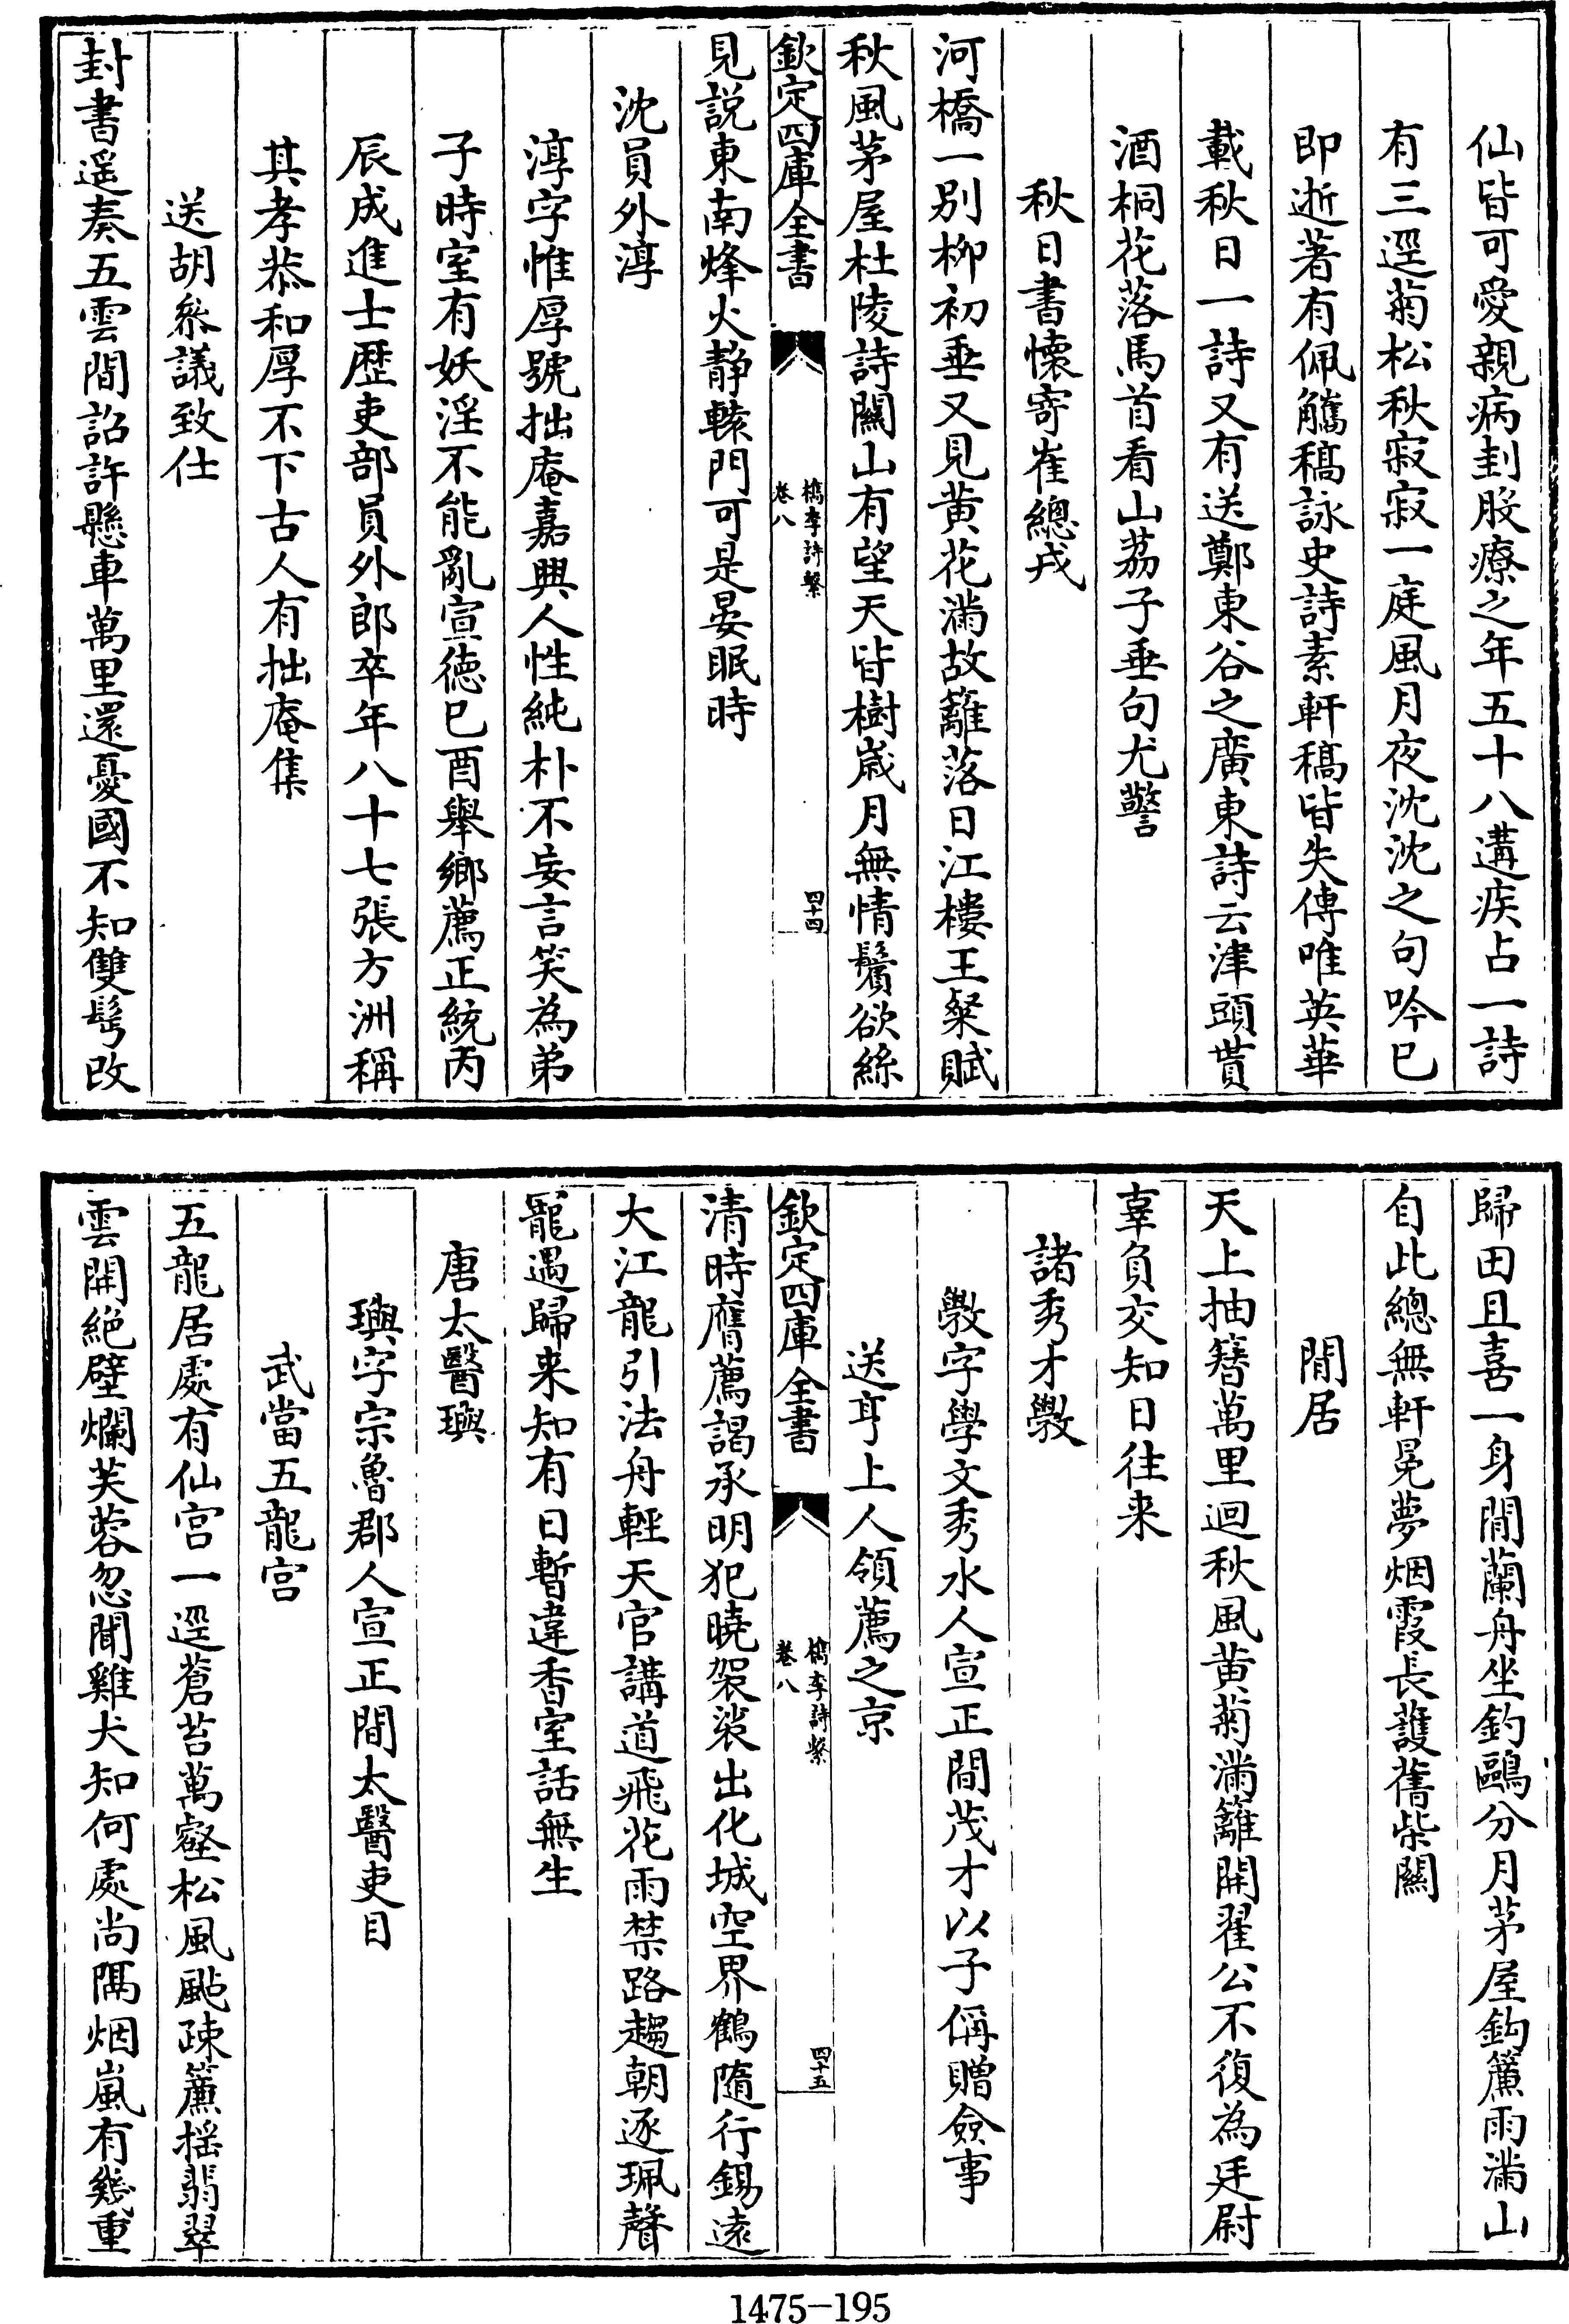 仙皆可愛親病刲股療之年五十八遘疾占一詩
有三逕菊松秋寂寂一庭風月夜沈沈之句吟已
即逝著有佩觿稿詠史詩素軒稿皆失傳唯英華
載秋日一詩又有送鄭東谷之廣東詩云津頭貰
酒桐花落馬首看山茘子垂句尤警
秋日書懷寄崔總戎
河橋一別柳初垂又見黄花滿故籬落日江樓王粲賦
秋風茅屋杜陵詩關山有望天皆樹嵗月無情鬢欲絲
欽定四庫全書
檇李詩繫
卷八
四十四
見說東南烽火静轅門可是晏眠時
沈員外淳
淳字惟厚號拙庵嘉興人性純朴不妄言笑為弟
子時室有妖淫不能亂宣徳己酉舉鄉薦正統丙
辰成進士歴吏部員外郎卒年八十七張方洲稱
其孝恭和厚不下古人有拙庵集
送胡叅議致仕
封書遥奏五雲間詔許懸車萬里還憂國不知雙髩改
歸田且喜一身閒蘭舟坐釣鷗分月茅屋鈎簾雨滿山
自此總無軒冕夢烟霞長護舊柴關
閒居
天上抽簪萬里迴秋風黄菊滿籬開翟公不復為廷尉
辜負交知日往来
諸秀才斆
斆字學文秀水人宣正間茂才以子偁贈僉事
送亨上人領薦之京
清時膺薦謁承明犯曉袈裟出化城空界鶴隨行錫遠
欽定四庫全書
檇李詩繫
卷八
四十五
大江龍引法舟輕天官講道飛花雨禁路趨朝逐珮聲
寵遇歸来知有日暫違香室話無生
唐太醫璵
璵字宗魯郡人宣正間太醫吏目
武當五龍宫
五龍居處有仙宫一逕蒼苔萬壑松風颭疎簾揺翡翠
雲開絶壁爛芙蓉忽聞雞犬知何處尚隔烟嵐有幾重
1475-195